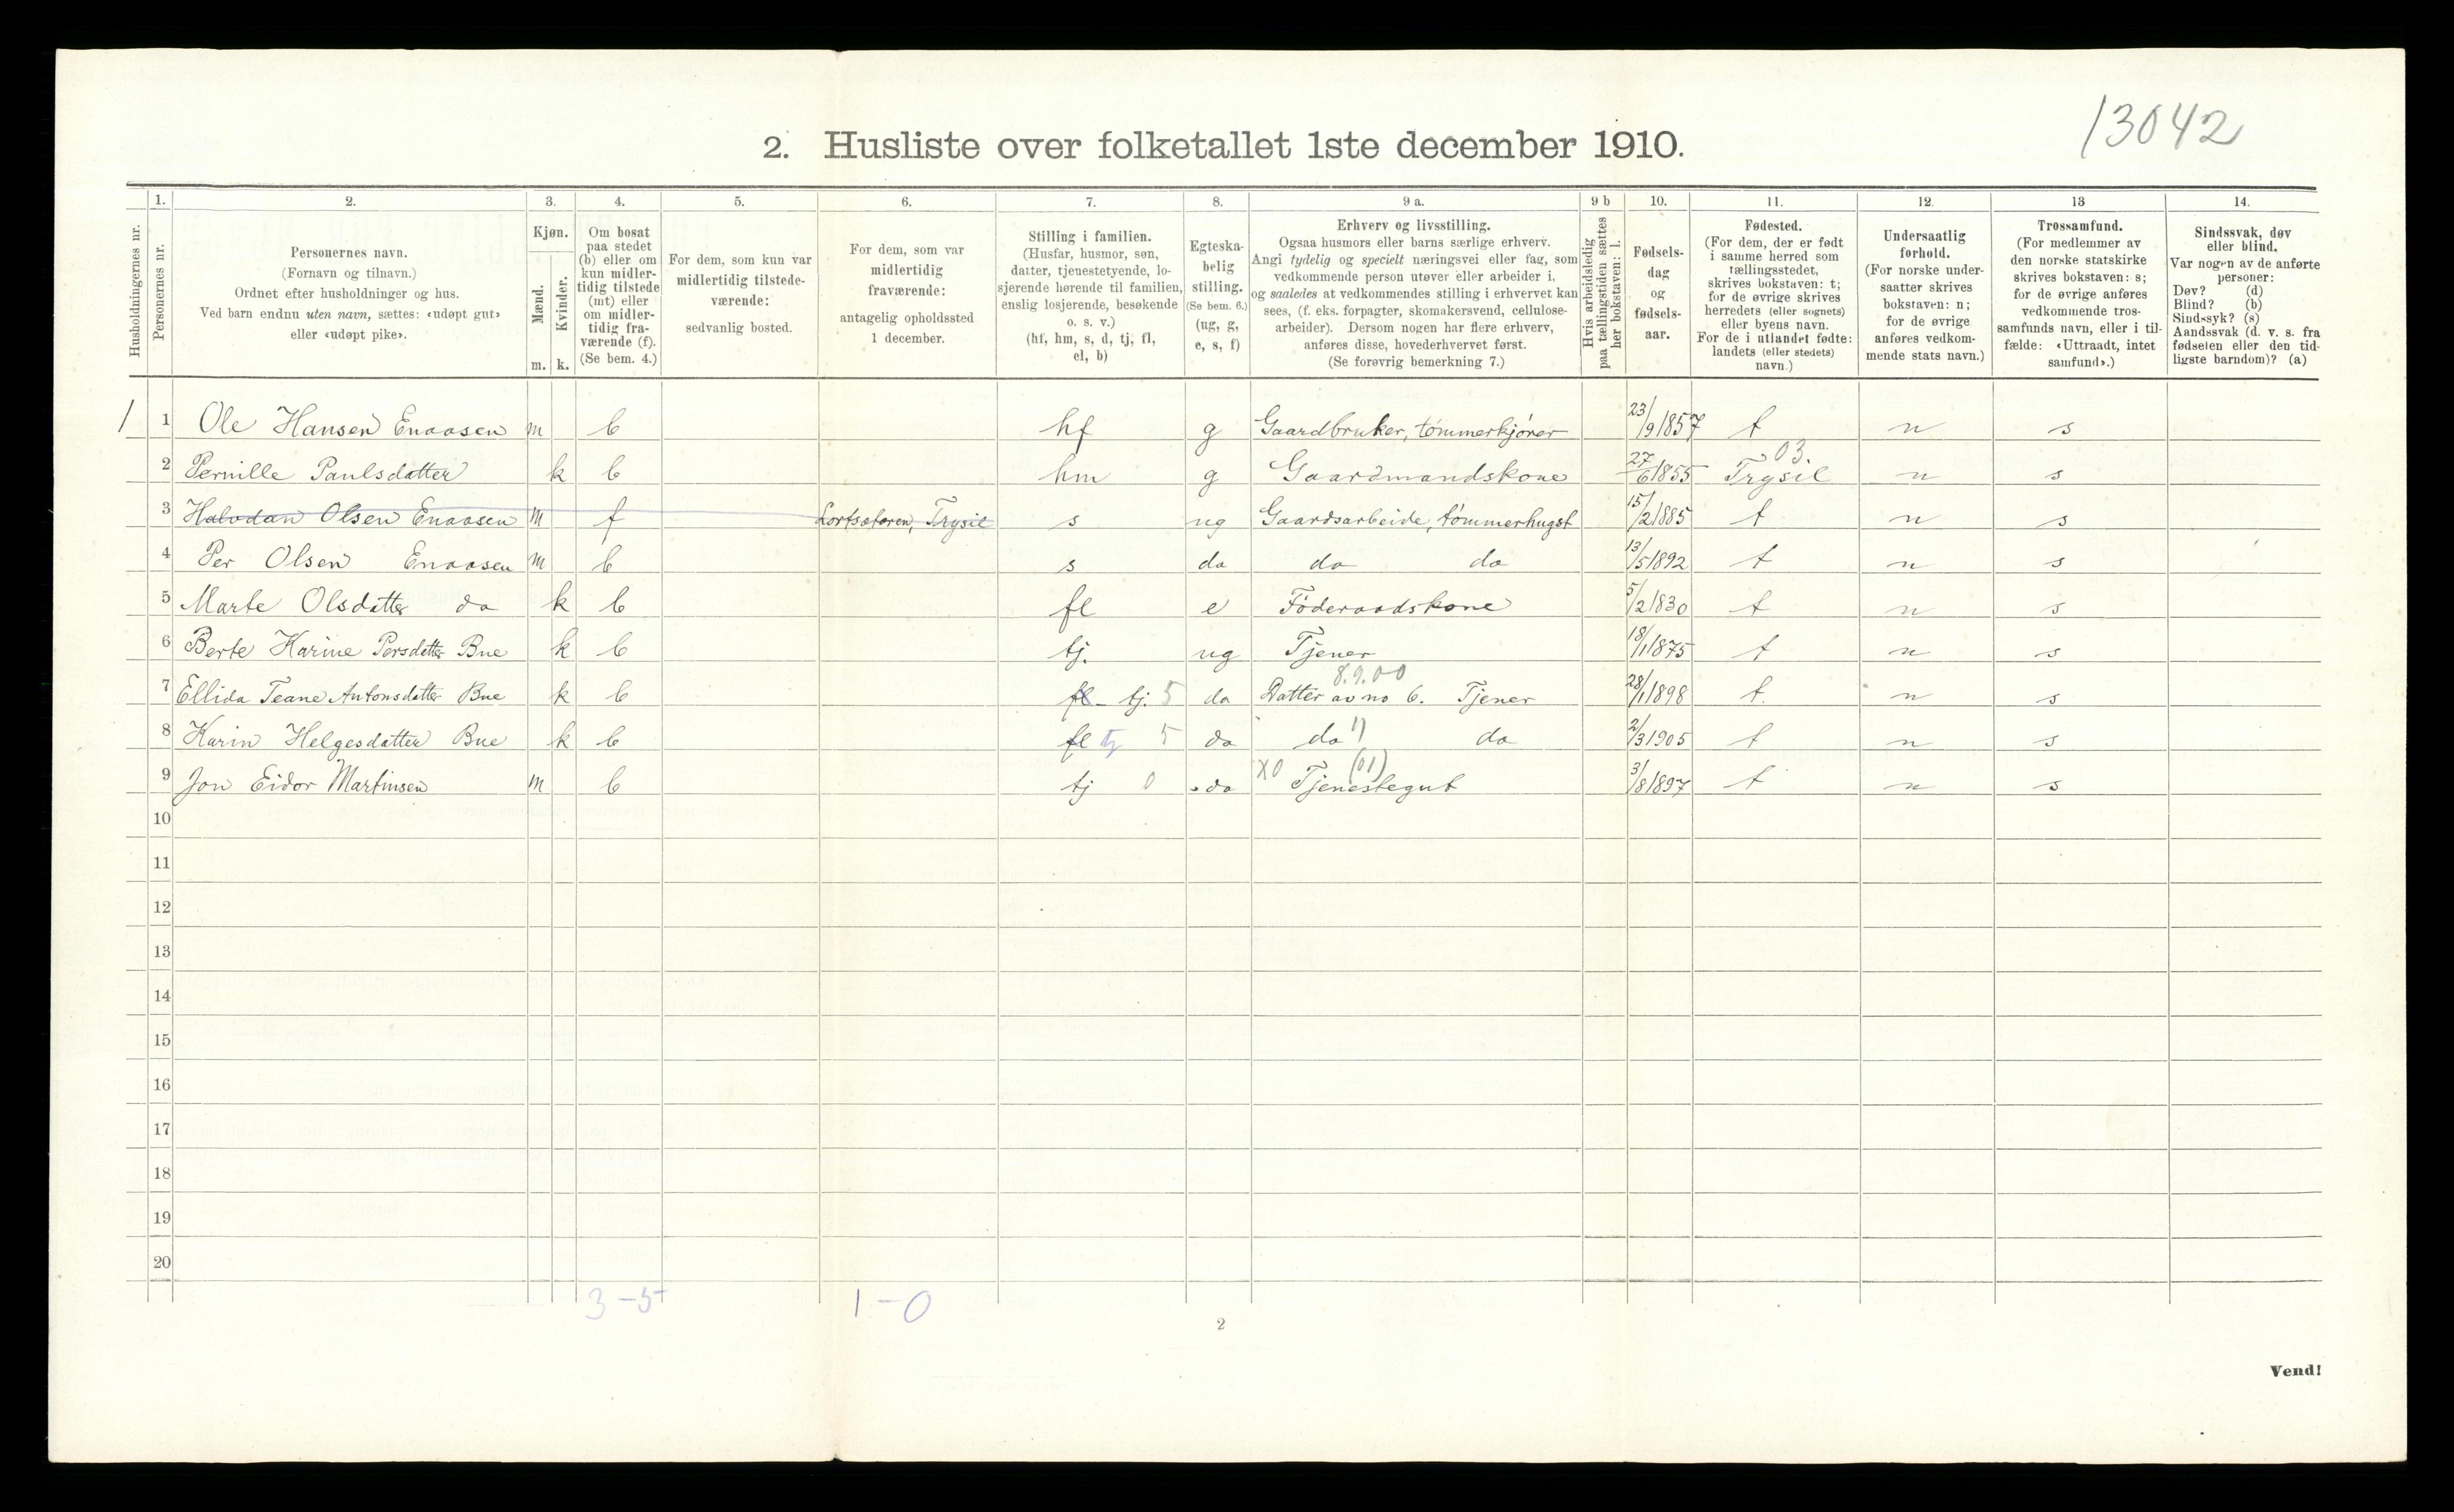 13042
2. Husliste over folketallet 1ste december 1910.
Husholdningernes nr.
1.
Personernes nr.
2.
Personernes navn.
(Fornavn og tilnavn.)
Ordnet efter husholdninger og hus.
Ved barn endnu uten navn, sættes: «udøpt gut»
eller «udøpt pike».
3.
Kjøn.
Mænd.
Kvinder.
m. k.
4.
Om bosat
paa stedet
(b) eller om
kun midler-
tidig tilstede
(mt) eller
om midler-
tidig fra-
værende (f).
(Se bem. 4.)
5.
For dem, som kun var
midlertidig tilstede-
værende:
sedvanlig bosted.
6.
For dem, som var
midlertidig
fraværende:
antagelig opholdssted
1 december.
7.
Stilling i familien.
(Husfar, husmor, søn,
datter, tjenestetyende, lo-
sjerende hørende til familien,
enslig losjerende, besøkende
o. s. v.)
(hf, hm, s, d, tj, fl,
el, b)
8.
Egteska-
belig
stilling.
(Se bem. 6.)
(ug, g,
e, s, f)
9 a.
Erhverv og livsstilling.
Ogsaa husmors eller barns særlige erhverv.
Angi tydelig og specielt næringsvei eller fag, som
vedkommende person utøver eller arbeider i,
og saaledes at vedkommendes stilling i erhvervet kan
sees, (f. eks. forpagter, skomakersvend, cellulose-
arbeider). Dersom nogen har flere erhverv,
anføres disse, hovederhvervet først.
(Se forøvrig bemerkning 7.)
9 b
Hvis arbeidsledig
paa tællingstiden sættes
her bokstaven: l.
10.
Fødsels-
dag
og
fødsels-
aar.
11.
Fødested.
(For dem, der er født
i samme herred som
tællingsstedet,
skrives bokstaven: t;
for de øvrige skrives
herredets (eller sognets)
eller byens navn.
For de i utlandet fødte:
landets (eller stedets)
navn.)
12.
Undersaatlig
forhold.
(For norske under-
saatter skrives
bokstaven: n;
for de øvrige
anføres vedkom-
mende stats navn.)
13
Trossamfund.
(For medlemmer av
den norske statskirke
skrives bokstaven: s;
for de øvrige anføres
vedkommende tros-
samfunds navn, eller i til-
fælde: «Uttraadt, intet
samfund».)
14.
Sindssvak, døv
eller blind.
Var nogen av de anførte
personer:
Døv? (d)
Blind? (b)
Sindssyk? (s)
Aandssvak (d. v. s. fra
fødselen eller den tid-
ligste barndom)? (a)
1 1 Ole Hansen Enaasen m b hf g Gaardbruker, tømmerkjører 23/9 1857 t n s
03.
2 Pernille Paulsdatter k b hm g Gaardmandskone 27/6 1855 Trysil n s
3 Halvdan Olsen Enaasen m f Lortsæteren, Trysil s ug Gaardsarbeide, tømmerhugst 15/2 1885 t n s
4 Per Olsen Enaasen m b s do do do 13/5 1892 t n s
5 Marte Olsdatter do k b fl e Føderaadskone 5/2 1830 t n s
6 Berte Karine Persdatter Bue k b tj. ug Tjener 18/1 1875 t n s
8.9.00
7 Ellida Teane Antonsdatter Bue k b fl - tj. 5 do Datter av no 6. Tjener 28/1 1898 t. n s
8 Karin Helgesdatter Bue k b fl tj 5 do do 1) do 2/3 1905 t n s
9 Jon Eidor Martinsen m b tj 0 do X0 (01) Tjenestegut 3/8 1897 t n s
10
11
12
13
14
15
16
17
18
19
20
3-5 1-0
2
Vend!